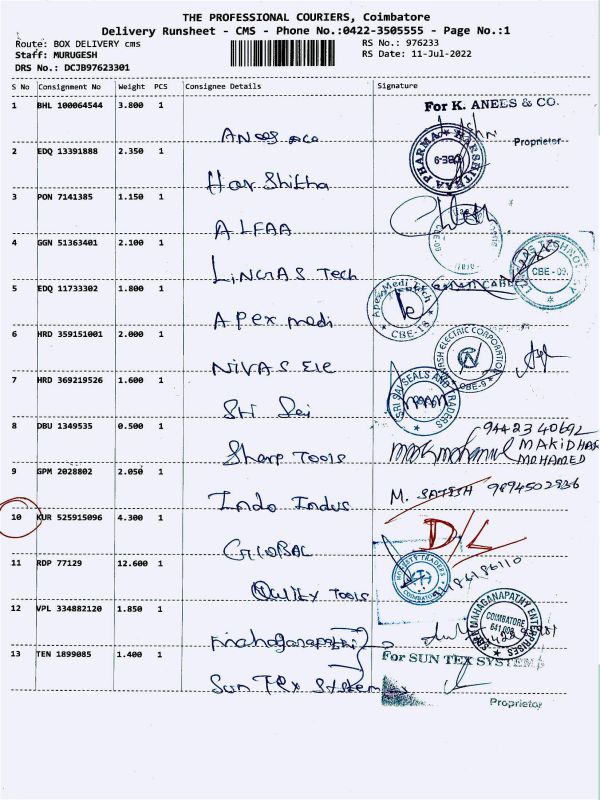 THE PROFESSIONAL COURIERS, Coimbatore
Delivery Runsheet - CMS - Phone No.:0422-3505555 - Page No.:1
Route: BOX DELIVERY cms RS No.: 976233
Staff: MURUGESH RS Date: 11-Jul-2022
DRS No.: DCJB97623301
S No Consignment No Weight PCS Consignee Details Signature
1 BHL 100064544 3.800 1 For K. ANEES & CO.
Anees &co Proprietor
2 EDQ 13391888 2.350 1 HARSHITHAA PHARMA CBE-9
Harshitha
3 PON 7141385 1.150 1
ALFAA
4 GGN 51363401 2.100 1
LINGAS Tech CBE - 09.
5 EDQ 11733302 1.800 1 Apex Medi Tech CBE-18
Apex medi
6 HRD 359151001 2.000 1 ELECTRIC CORPORATION CBE-9
NIVAS Ele
7 HRD 369219526 1.600 1 SRI SAI SEALS AND TRADERS
Sri Sai
8 DBU 1349535 0.500 1
Sharp Tools MAKIDHAR MOHAMED
9 GPM 2028802 2.050 1
Indo Indus M. SATISH 9894502836
10 KUR 525915096 4.300 1 D/L
GLOBAL
11 RDP 77129 12.600 1 HONESTY TRADERS
Quality Tools
12 VPL 334882120 1.850 1 SREE MAHAGANAPATHY ENTERPRISES COIMBATORE
mahaganapathi
13 TEN 1899085 1.400 1 For SUN TEX SYSTEMS
Sun Tex System
Proprietor